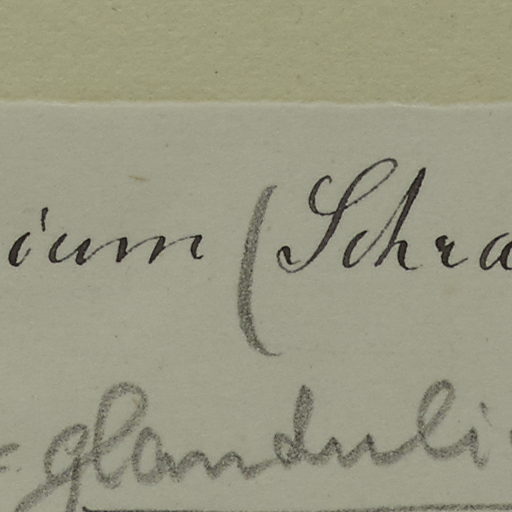 ium (Schra
= glanduli